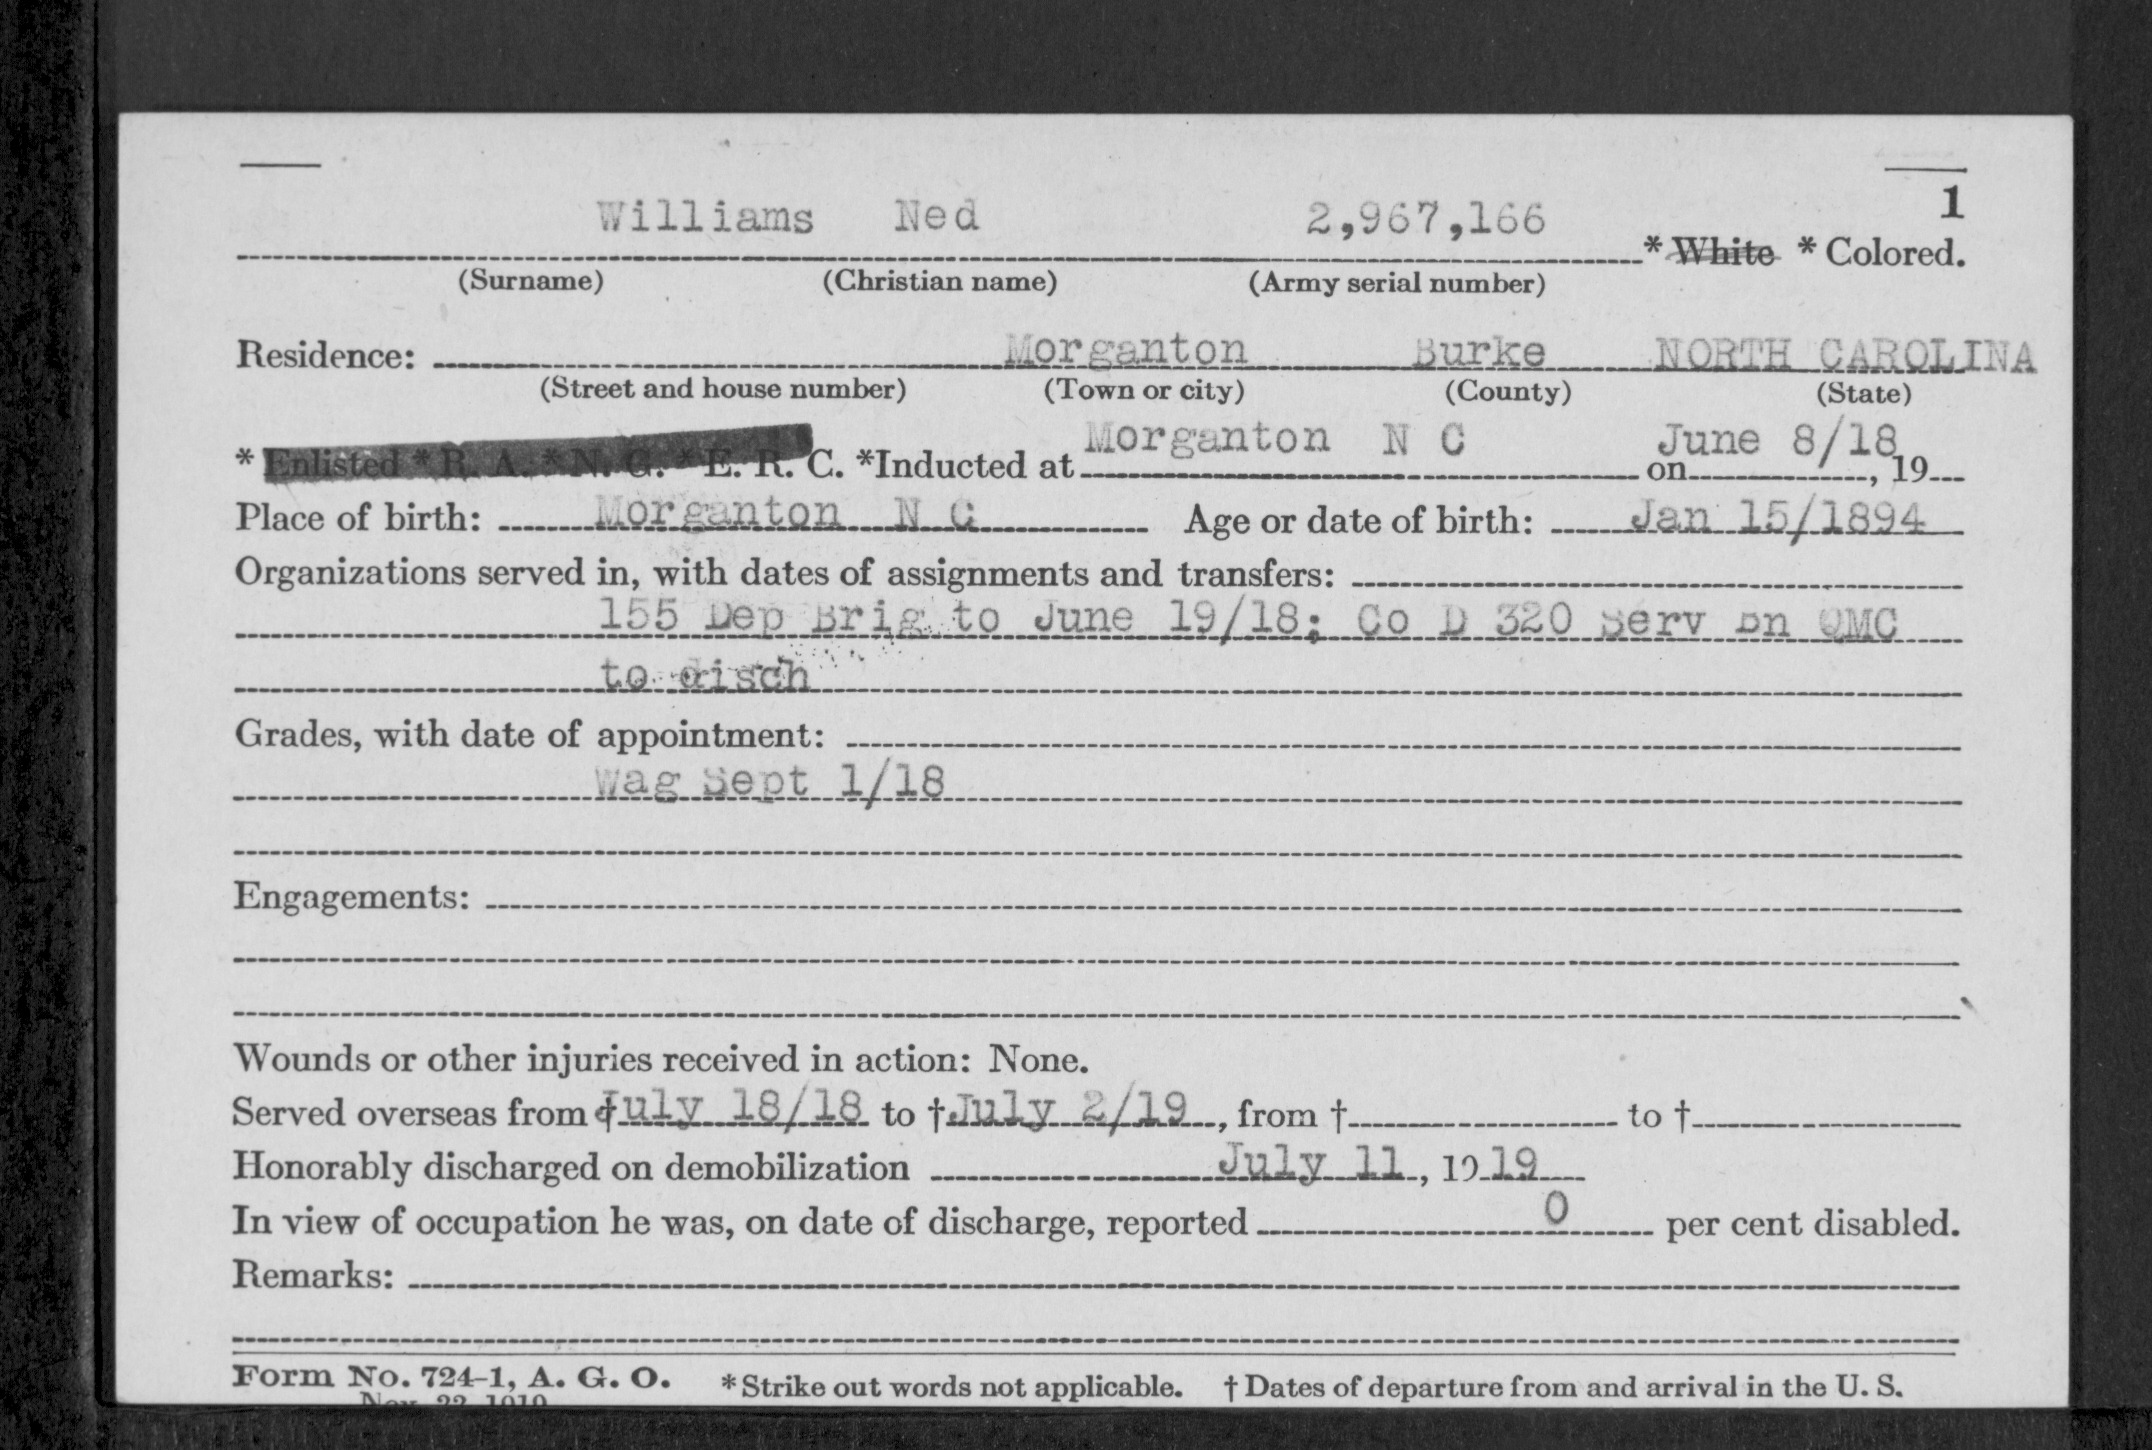 1
Williams Ned 2,967,166 * White * Colored.
(Surname) (Christian name) (Army serial number)
Residence: Morganton Burke NORTH CAROLINA
(Street and house number) (Town or city) (County) (State)
* Enlisted * R. A. * N. G. * E. R. C. *Inducted at Morganton N C on June 8/18, 19
Place of birth: Morganton N C Age or date of birth: Jan 15/1894
Organizations served in, with dates of assignments and transfers:
155 Dep Brig to June 19/18; Co D 320 Serv Bn QMC
to disch
Grades, with date of appointment:
Wag Sept 1/18
Engagements:
Wounds or other injuries received in action: None.
Served overseas from †July 18/18 to †July 2/19, from † to †
Honorably discharged on demobilization July 11, 1919
In view of occupation he was, on date of discharge, reported 0 per cent disabled.
Remarks:
Form No. 724-1, A. G. O. *Strike out words not applicable. † Dates of departure from and arrival in the U. S.
Nov. 22, 1919